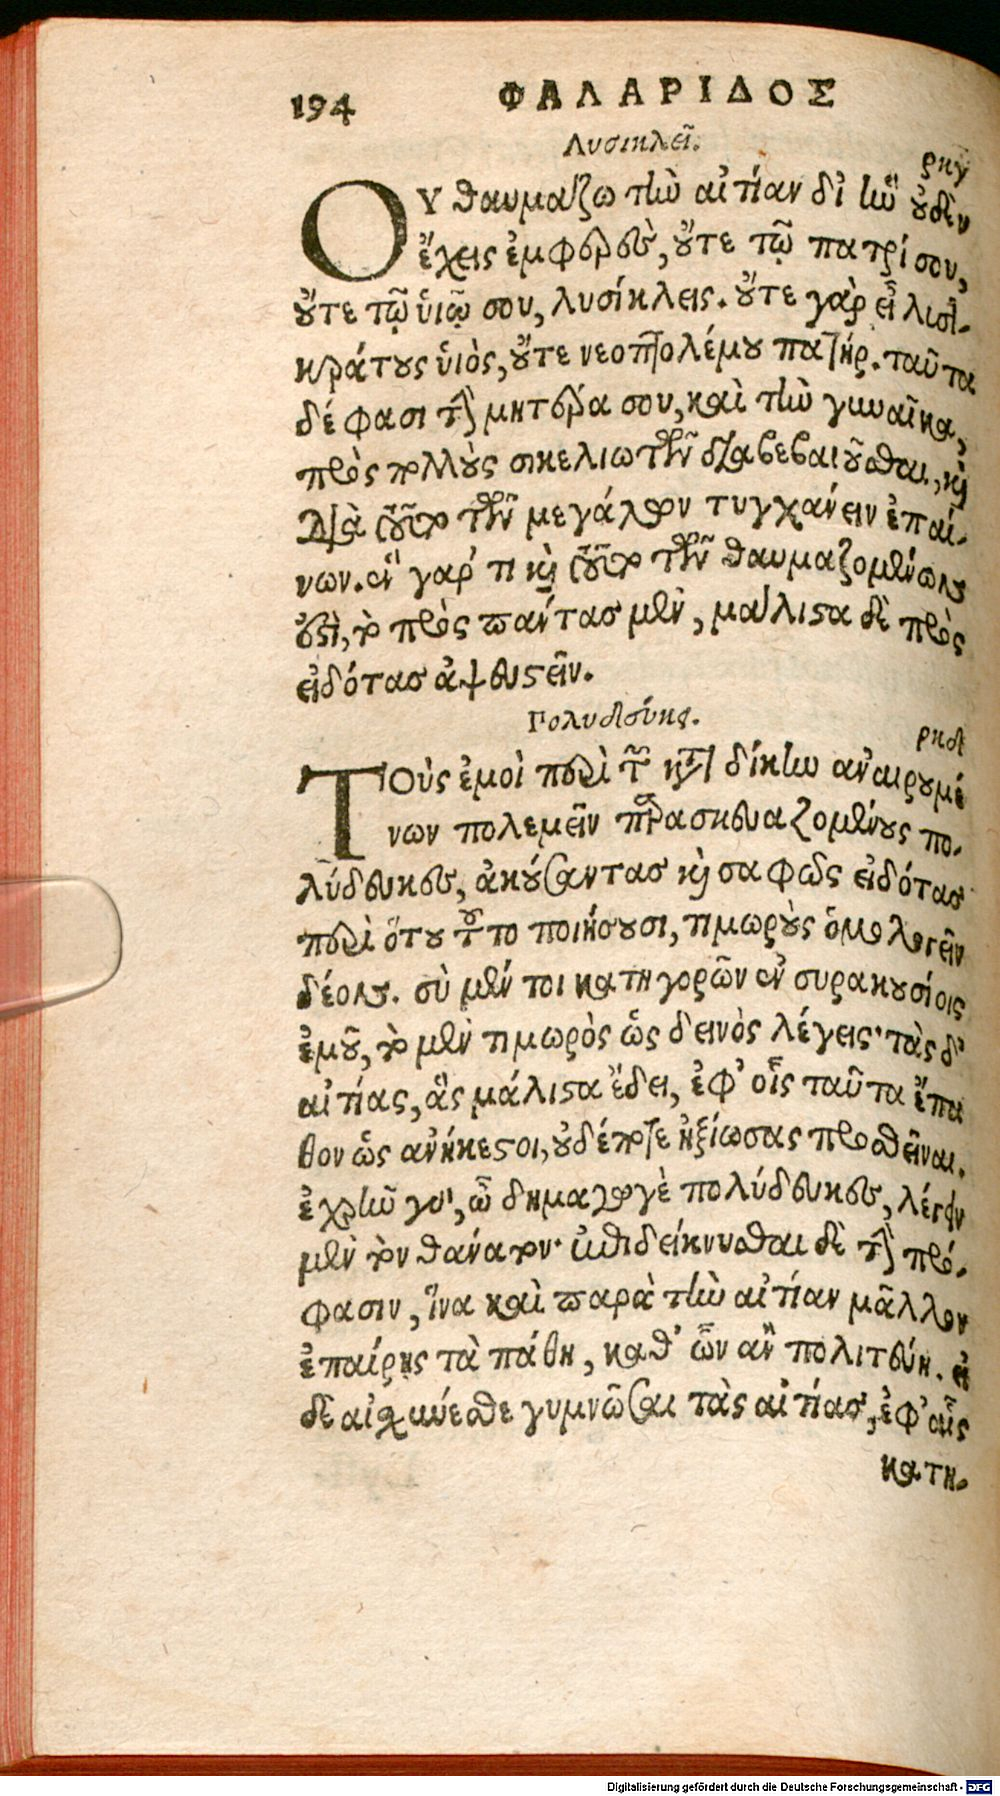 194 ΦΑΛΑΡΙΔΟΣ
Λυσικλεῖ. ρκγ
ΟΥ θαυμάζω τὴν αἰτίαν δι' ἣν οὐδὲν
ἔχεις ἐμφερὲς, οὔτε τῷ πατρί σου,
οὔτε τῷ ὑιῷ σου, λυσίκλεις. οὔτε γὰρ εἶ
κράτους ὑιὸς, οὔτε νεοπτολέμου πατήρ. ταῦτα
δέ φασι τὴν μητέρα σου, καὶ τὴν γυναῖκα,
πρὸς πολλοὺς σικελιωτῶν διαβεβαιοῦσθαι, καὶ
διὰ τοῦτο τῶν μεγάλων τυγχάνειν ἐπαί-
νων. ἓν γάρ τι καὶ τοῦτο τῶν θαυμαζομένων
ἐστὶ, τὸ πρὸς πάντας μὲν, μάλιστα δὲ πρὸς
εἰδότας ἀψευστεῖν.
Πολυδεύκης. ρκδ
ΤΟὺς ἐμοὶ περὶ τῶν κατὰ δίκην ἀναιρουμέ
νων πολεμεῖν παρασκευαζομένους πο-
λύδευκες, ἀκούσαντας καὶ σαφῶς εἰδότας
περὶ ὅτου τοῦτο ποιήσουσι, τιμωροὺς ὁμολογεῖν
δέον. σὺ μέν τοι κατηγορῶν ἐν συρακουσίοις
ἐμοῦ, τὸ μὲν τιμωρὸς ὡς δεινὸς λέγεις· τὰς δ'
αἰτίας, ἃς μάλιστα ἔδει, ἐφ' οἷς ταῦτα ἔπα
θον ὡς ἀνήκεστοι, οὐδέποτε ἠξίωσας προθεῖναι.
ἐχρῆν γὰρ, ὦ δημαγωγὲ πολύδευκες, λέγειν
μὲν τὸν θάνατον· ἐπιδείκνυσθαι δὲ τὴν πρό-
φασιν, ἵνα καὶ παρὰ τὴν αἰτίαν μᾶλλον
ἐπαίρῃς τὰ πάθη, καθ' ὧν ἂν πολιτεύῃ. εἰ
δὲ αἰσχύνεσθε γυμνῶσαι τὰς αἰτίας, ἐφ' αἷς
κατη-
Digitalisierung gefördert durch die Deutsche Forschungsgemeinschaft - DFG